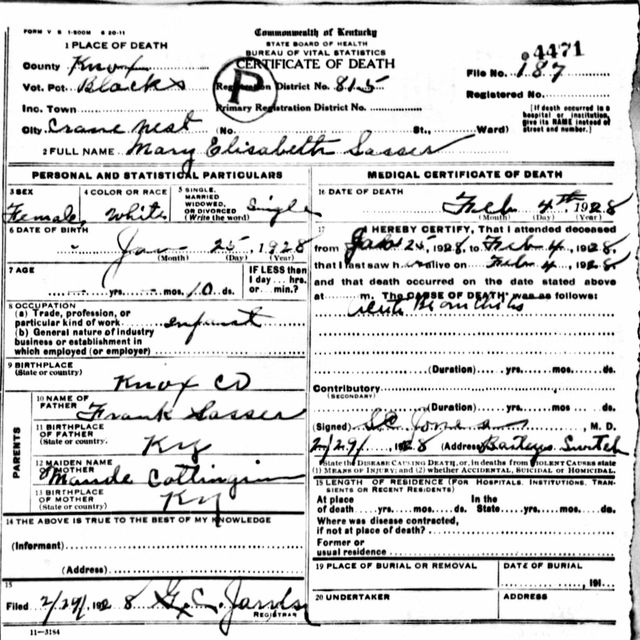 FORM V S 1-500M 6 20-11
Commonwealth of Kentucky
STATE BOARD OF HEALTH
BUREAU OF VITAL STATISTICS
CERTIFICATE OF DEATH
4471
File No. 187
Registered No.
[If death occurred in a hospital or institution, give its NAME instead of street and number.]
1 PLACE OF DEATH
County Knox
Vot. Pct. Blacks
Inc. Town
City Crane nest (No. St., Ward)
P
Registration District No. 815
Primary Registration District No.
2 FULL NAME Mary Elisabeth Sasser
PERSONAL AND STATISTICAL PARTICULARS
3 SEX Female
4 COLOR OR RACE White
5 SINGLE, MARRIED WIDOWED, OR DIVORCED (Write the word) Single
6 DATE OF BIRTH
Jan 25, 1928
(Month) (Day) (Year)
7 AGE
yrs. mos. 10 ds.
IF LESS than 1 day... hrs. or min.?
8 OCCUPATION
(a) Trade, profession, or particular kind of work infant
(b) General nature of industry business or establishment in which employed (or employer)
9 BIRTHPLACE
(State or country)
Knox Co
PARENTS
10 NAME OF FATHER Frank Sasser
11 BIRTHPLACE OF FATHER (State or country. Ky
12 MAIDEN NAME OF MOTHER Maude
13 BIRTHPLACE OF MOTHER (State or country) Ky
14 THE ABOVE IS TRUE TO THE BEST OF MY KNOWLEDGE
(Informant)
(Address)
15
Filed 2/29/, 1928 G. C. Jarvis
REGISTRAR
11-3184
MEDICAL CERTIFICATE OF DEATH
16 DATE OF DEATH
Feb 4th 1928
(Month) (Day) (Year)
17 I HEREBY CERTIFY, That I attended deceased
from Jan 25, 1928, to Feb 4, 1928,
that I last saw h alive on Feb 4, 1928
and that death occurred on the date stated above
at m. The CAUSE OF DEATH was as follows:
(Duration) yrs. mos. ds.
Contributory
(SECONDARY)
(Duration) yrs. mos. ds.
(Signed) , M. D.
2/29/, 1928 (Address) Baileys Switch
State the DISEASE CAUSING DEATH, or, in deaths from VIOLENT CAUSES state (1) MEANS OF INJURY; and (2) whether ACCIDENTAL, SUICIDAL or HOMICIDAL.
18 LENGTH OF RESIDENCE (FOR HOSPITALS, INSTITUTIONS, TRANSIENTS OR RECENT RESIDENTS)
At place of death yrs. mos. ds. In the State yrs. mos. ds.
Where was disease contracted, if not at place of death?
Former or usual residence
19 PLACE OF BURIAL OR REMOVAL
DATE OF BURIAL
, 191
20 UNDERTAKER
ADDRESS